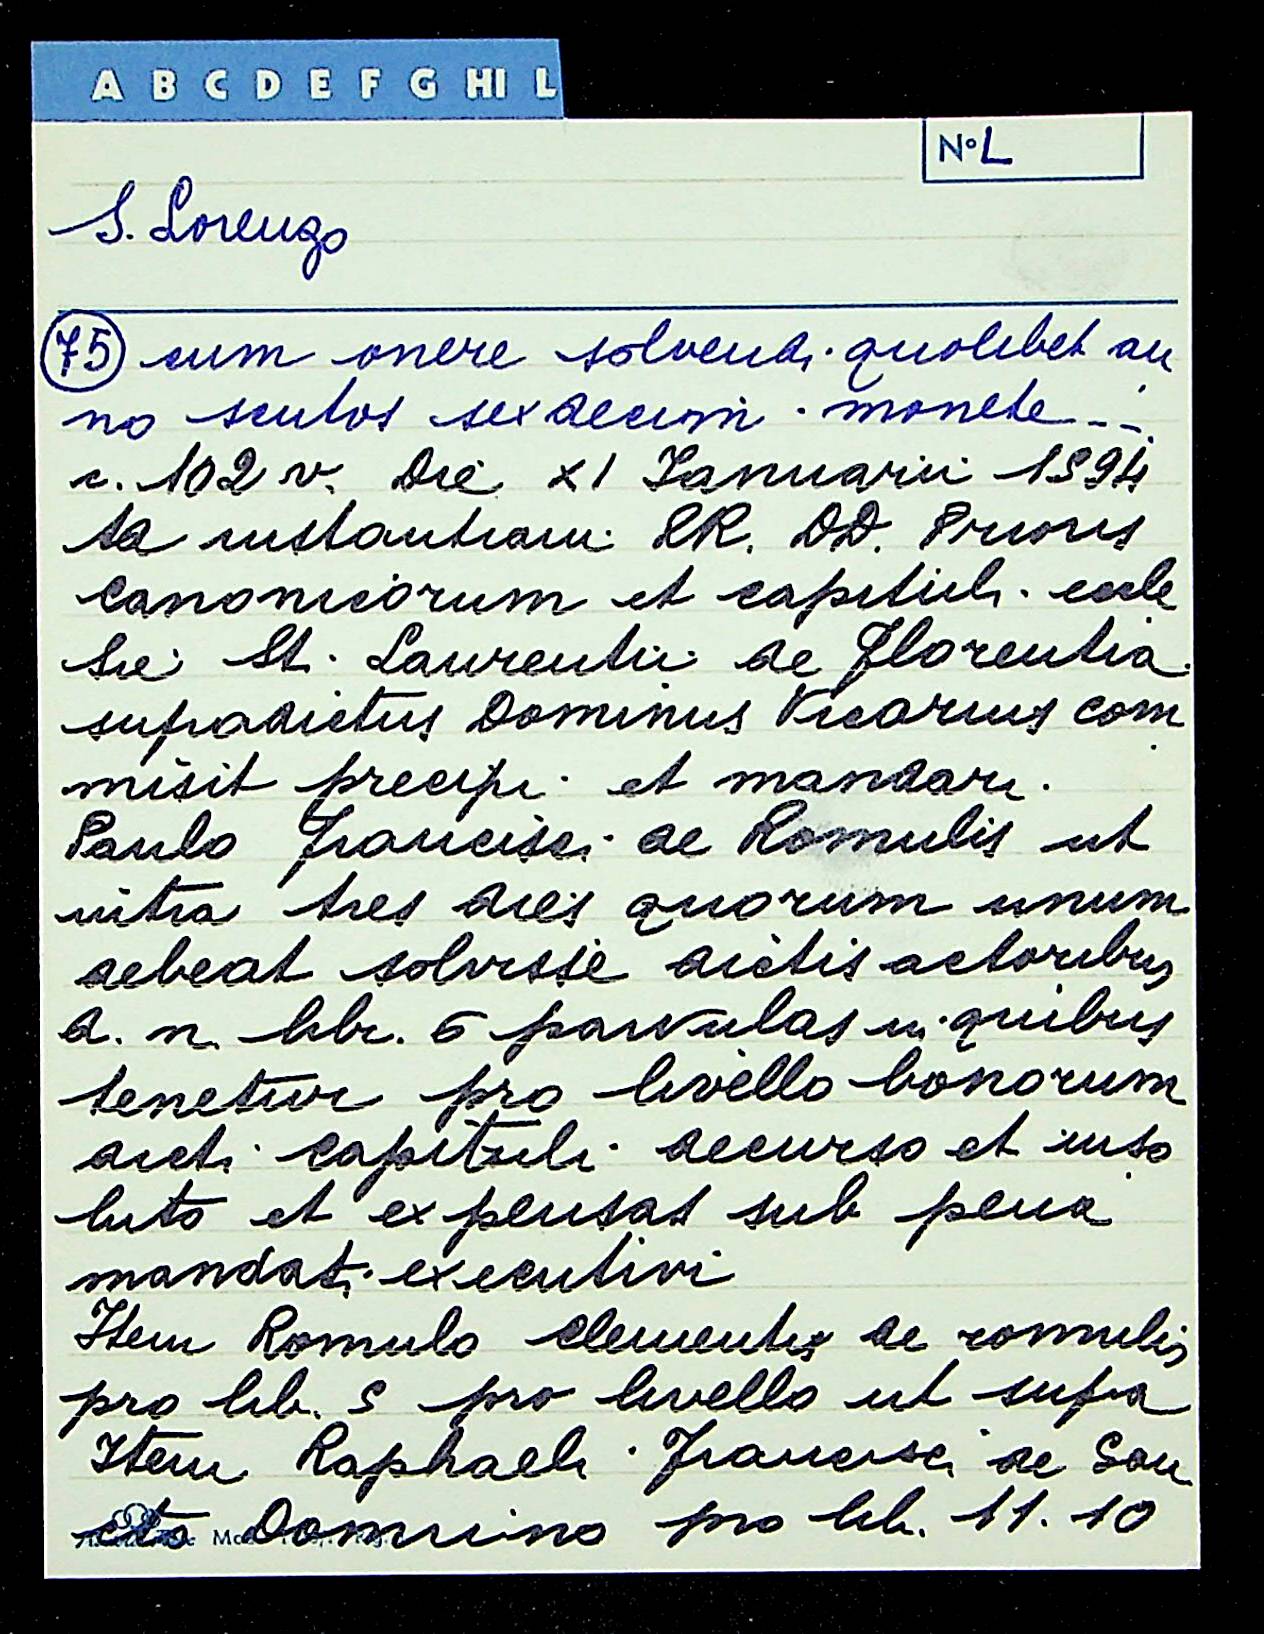 A B C D E F G HI L
N° L
S. Lorenzo
75 cum onere solvendi quolibet an
no scutos sexdecim monete --
c. 102 v. Die XI Januarii 1594
ta instantiam RR. DD. Prioris
canonicorum et capituli eccle
sie St. Laurentii de Florentia
supradictus Dominus Vicarius com
misit precipi et mandari
Paulo Francisci de Romulis ut
intra tres dies quorum unum
debeat solvisse dictis actoribus
d. n. libr. 6 parvulas in quibus
tenetur pro livello bonorum
dicti capituli decurso et inso
luto et expensas sub pena
mandati executivi
Item Romulo Clementis de romulis
pro lib. 5 pro livello ut supra
Item Raphaeli Francisci de San
cto Domnino pro lib. 11.10